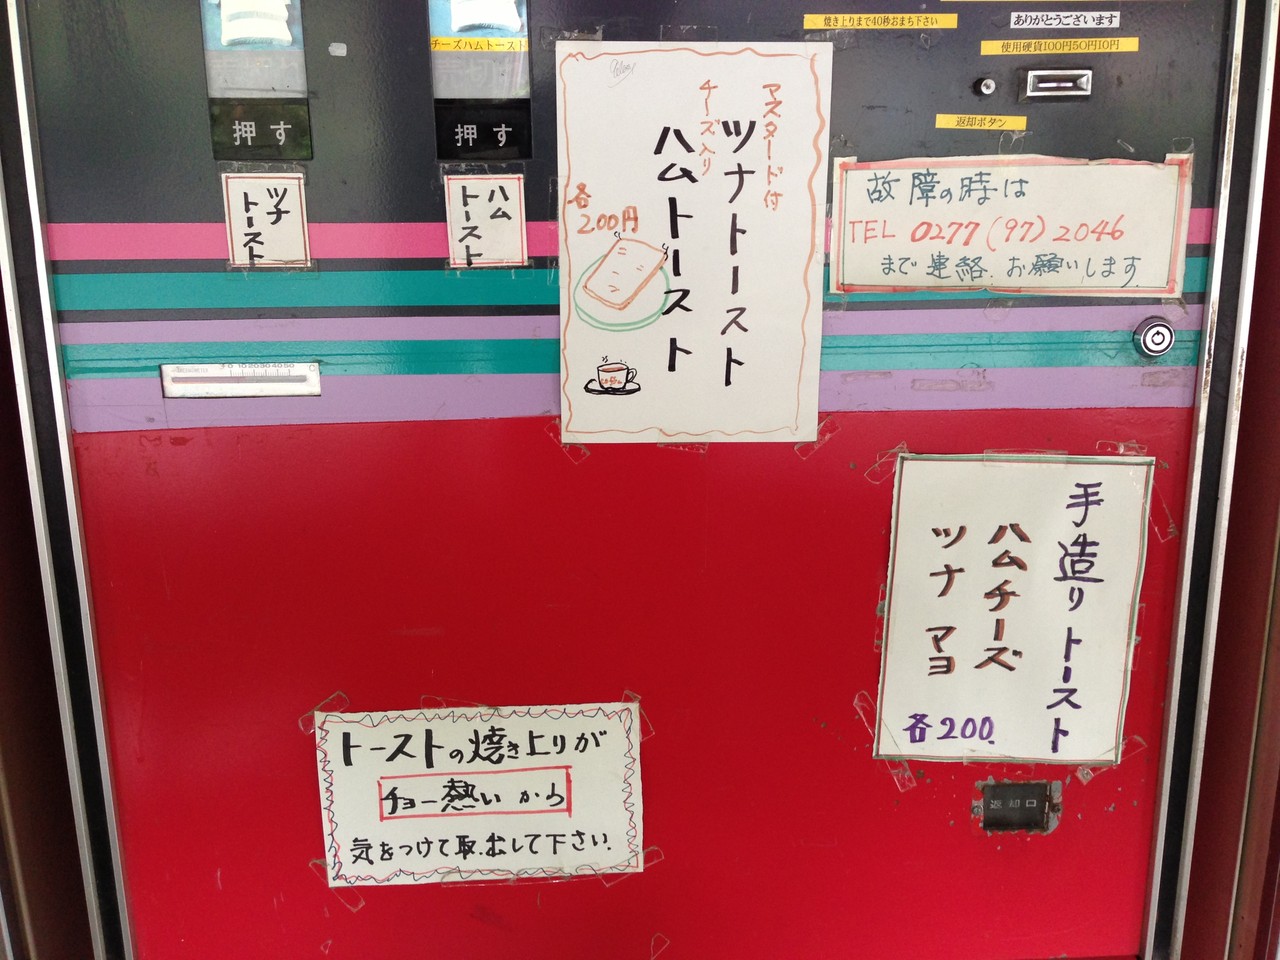 焼き上りまで40秒おまち下さい
ありがとうございます
使用硬貨100円50円10円
チーズハムトースト
返却ボタン
押す
押す
ツナ
トースト
ハム
トースト
マスタード付
ツナトースト
チーズ入り
ハムトースト
各
200円
coffee
故障の時は
TEL 0277(97)2046
まで連絡.お願いします.
手造りトースト
ハムチーズ
ツナ マヨ
各200.
返却口
トーストの焼き上りが
チョー熱いから
気をつけて取.出して下さい.